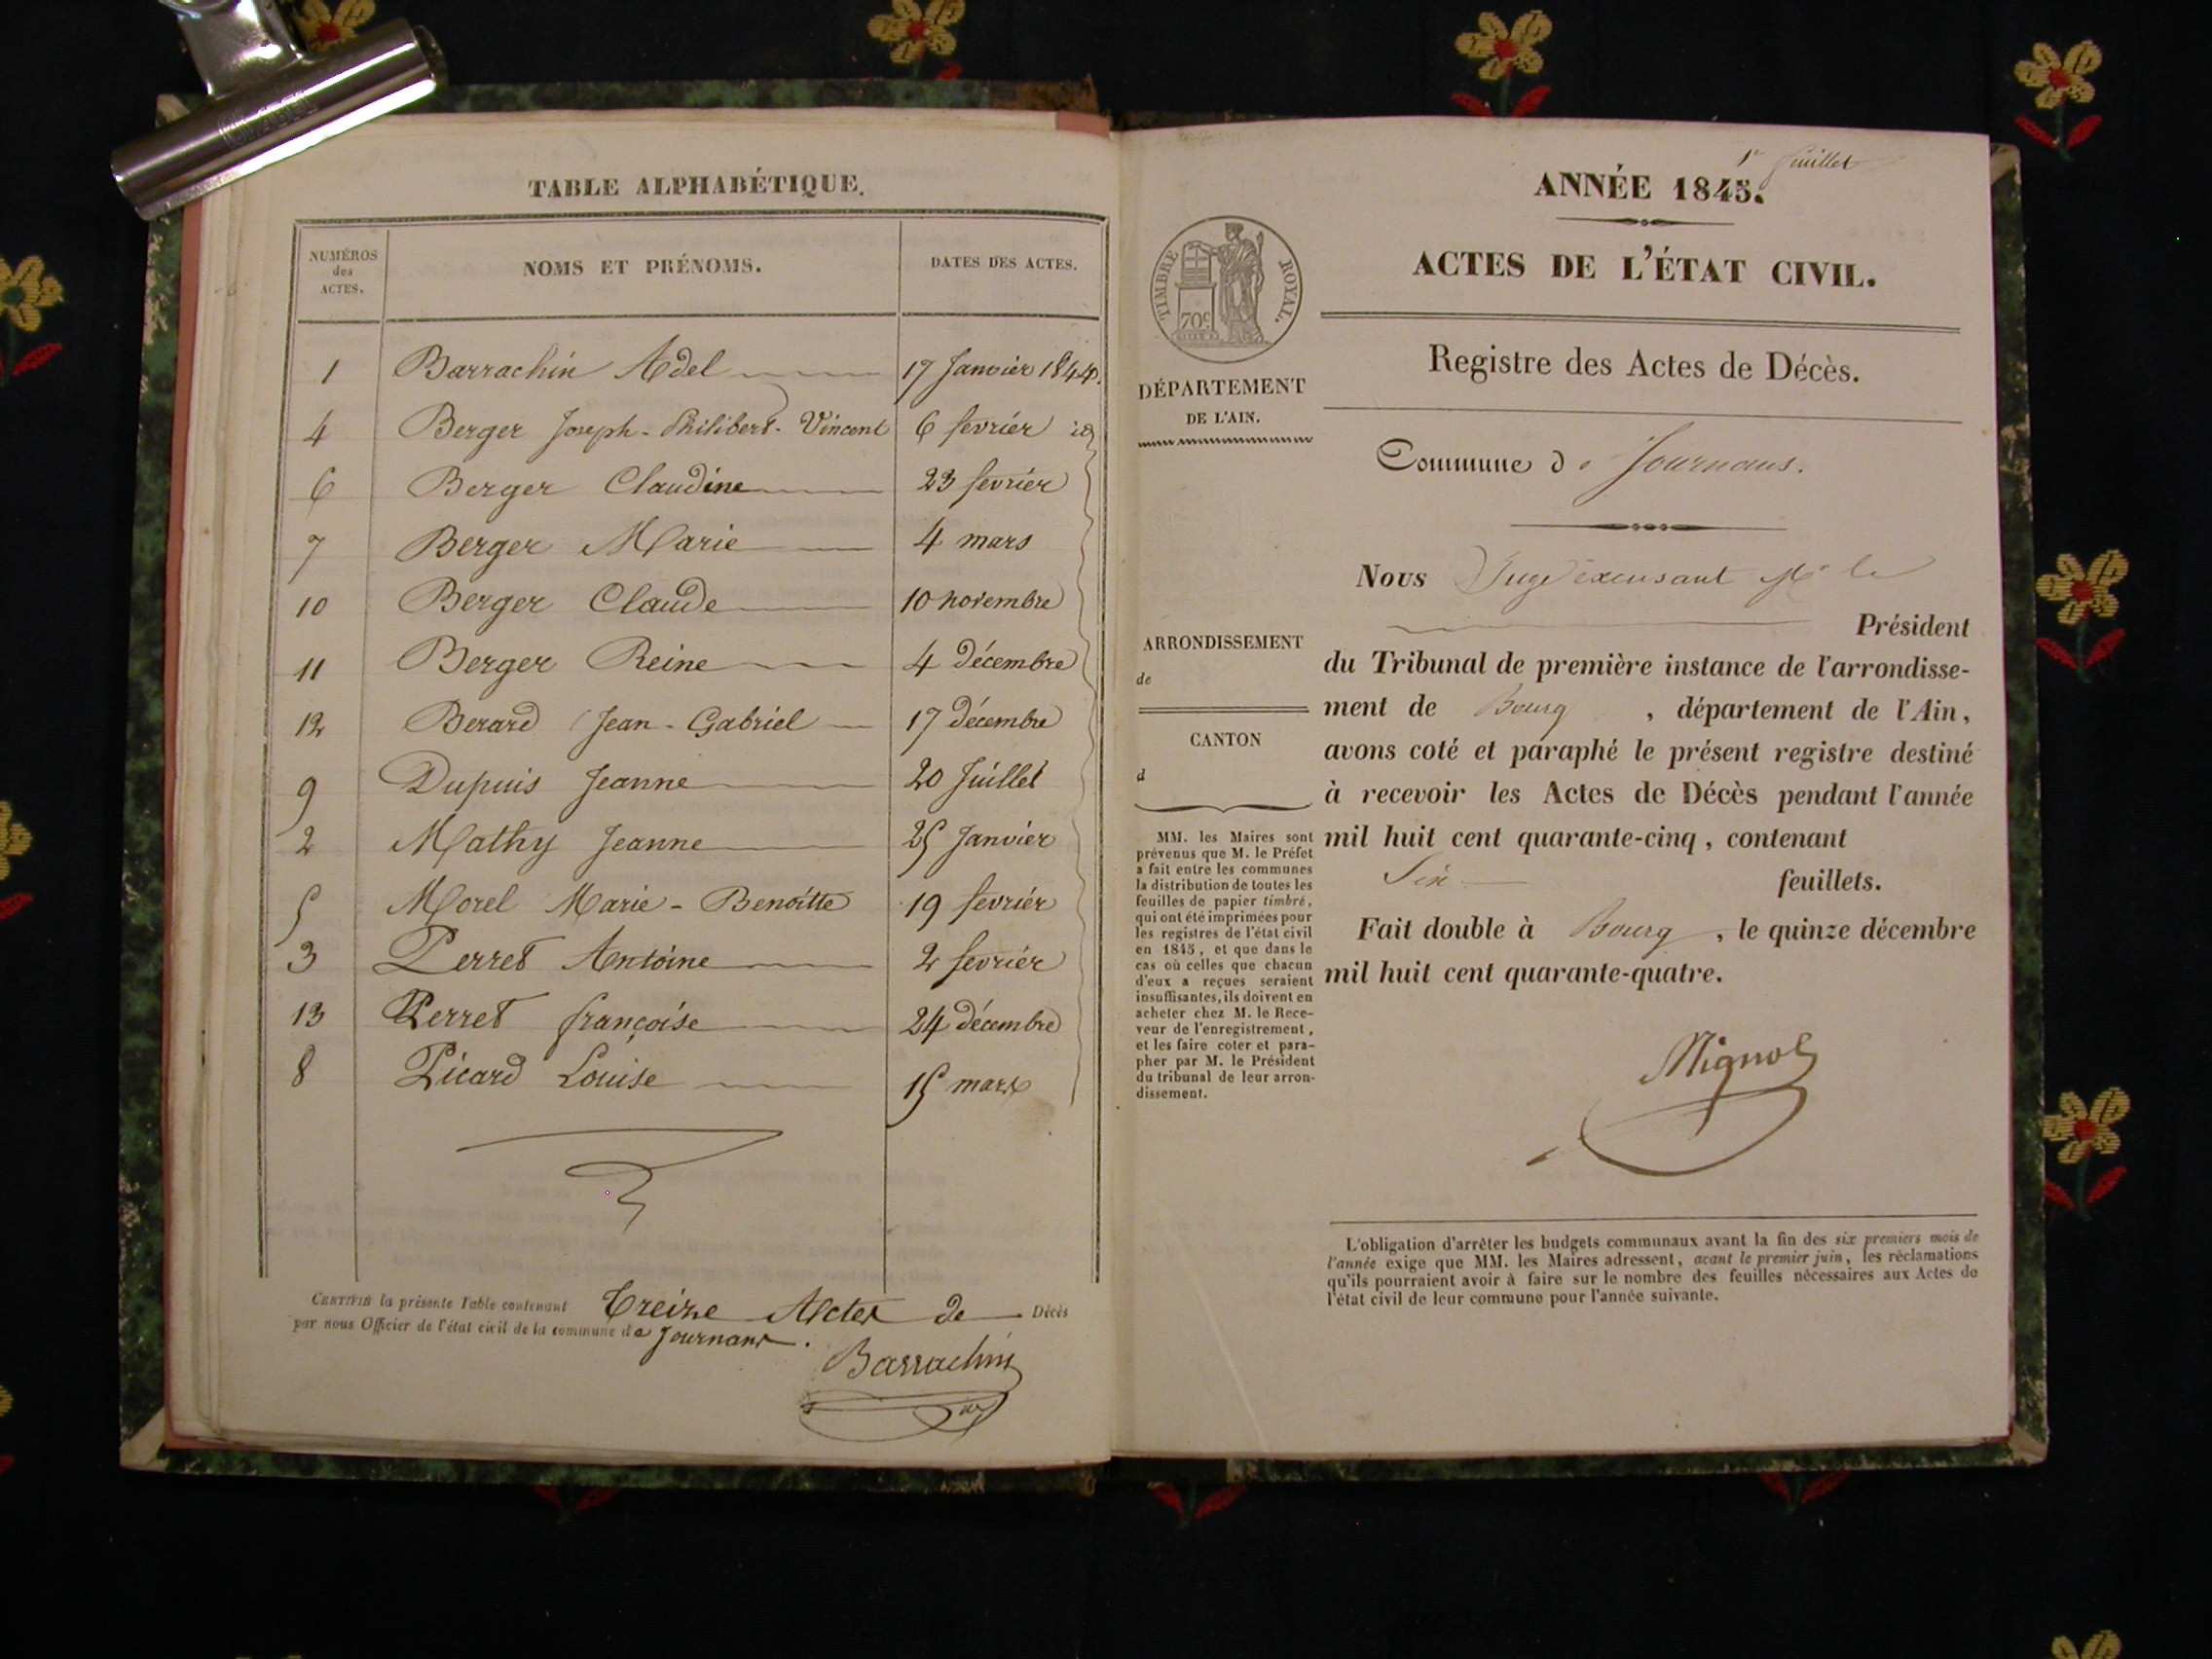 TABLE ALPHABÉTIQUE.
NUMÉROS des ACTES.
NOMS ET PRÉNOMS.
DATES DES ACTES.
1 Barrachin Adel 17 Janvier 1844.
4 Berger Joseph-Philibert-Vincent 6 fevrier id
6 Berger Claudine 23 fevrier
7 Berger Marie 4 mars
10 Berger Claude 10 novembre
11 Berger Reine 4 décembre
12 Berard Jean-Gabriel 17 décembre
9 Dupuis Jeanne 20 Juillet
2 Mathy Jeanne 25 Janvier
5 Morel Marie-Benoitte 19 fevrier
3 Perret Antoine 2 fevrier
13 Perret françoise 24 décembre
8 Picard Louise 15 mars
CERTIFIÉ la présente Table contenant Treize Actes de Décès
par nous Officier de l'état civil de la commune de Journans.
Barrachin
1er feuillet
ANNÉE 1845.
ACTES DE L'ÉTAT CIVIL.
TIMBRE ROYAL.
70c
DÉPARTEMENT
DE L'AIN.
ARRONDISSEMENT
de
CANTON
d
MM. les Maires sont
prévenus que M. le Préfet
a fait entre les communes
la distribution de toutes les
feuilles de papier timbré,
qui ont été imprimées pour
les registres de l'état civil
en 1845, et que dans le
cas où celles que chacun
d'eux a reçues seraient
insuffisantes, ils doivent en
acheter chez M. le Rece-
veur de l'enregistrement,
et les faire coter et para-
pher par M. le Président
du tribunal de leur arron-
dissement.
Registre des Actes de Décès.
Commune de Journans.
Nous Juge excusant Mr le
Président
du Tribunal de première instance de l'arrondisse-
ment de Bourg, département de l'Ain,
avons coté et paraphé le présent registre destiné
à recevoir les Actes de Décès pendant l'année
mil huit cent quarante-cinq, contenant
Six feuillets.
Fait double à Bourg, le quinze décembre
mil huit cent quarante-quatre.
Mignot
L'obligation d'arrêter les budgets communaux avant la fin des six premiers mois de
l'année exige que MM. les Maires adressent, avant le premier juin, les réclamations
qu'ils pourraient avoir à faire sur le nombre des feuilles nécessaires aux Actes de
l'état civil de leur commune pour l'année suivante.